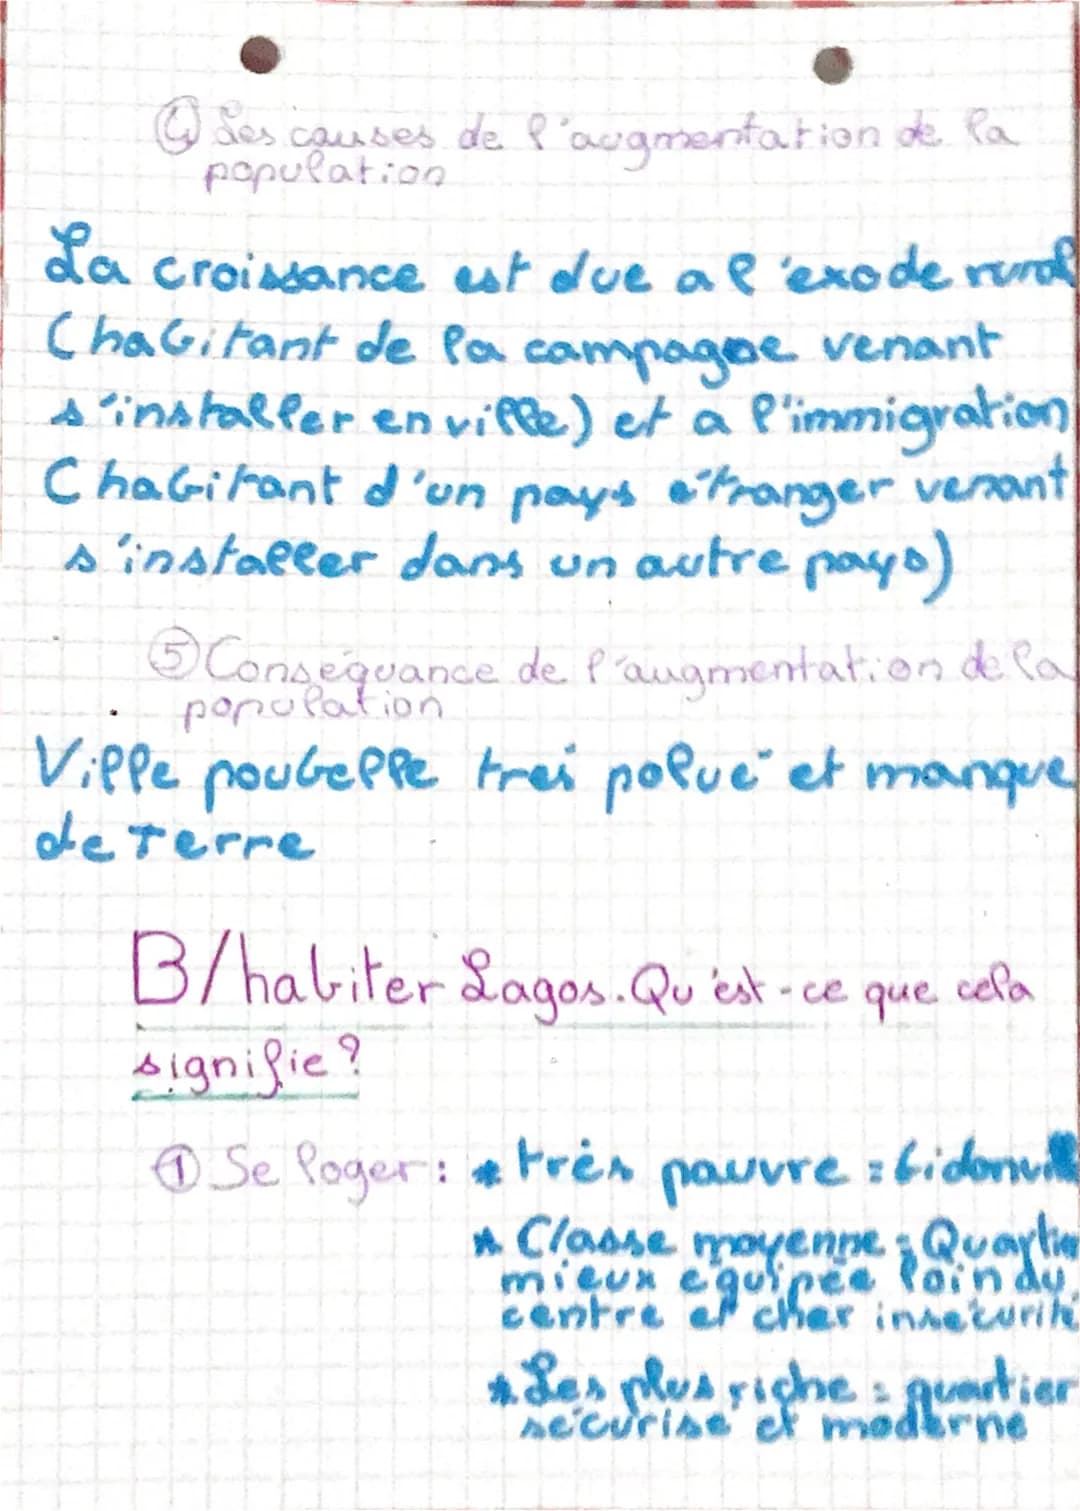 ④ Les causes de l'augmentation de la
population
La croissance est due a l'exode rural
(habitant de la campagne venant
s'installer en ville) et a l'immigration
(habitant d'un pays étranger venant
s'installer dans un autre pays)
⑤ Conséquance de l'augmentation de la
population
Ville poubelle trés polué et manque
de Terre
B/habiter Lagos. Qu'est-ce que cela
signifie?
① Se loger: * très pauvre = bidonvill
* Classe moyenne = Quartier
mieux équipée loin du
centre et cher insécurité
* Les plus riche = quartier
sécurisé et moderne